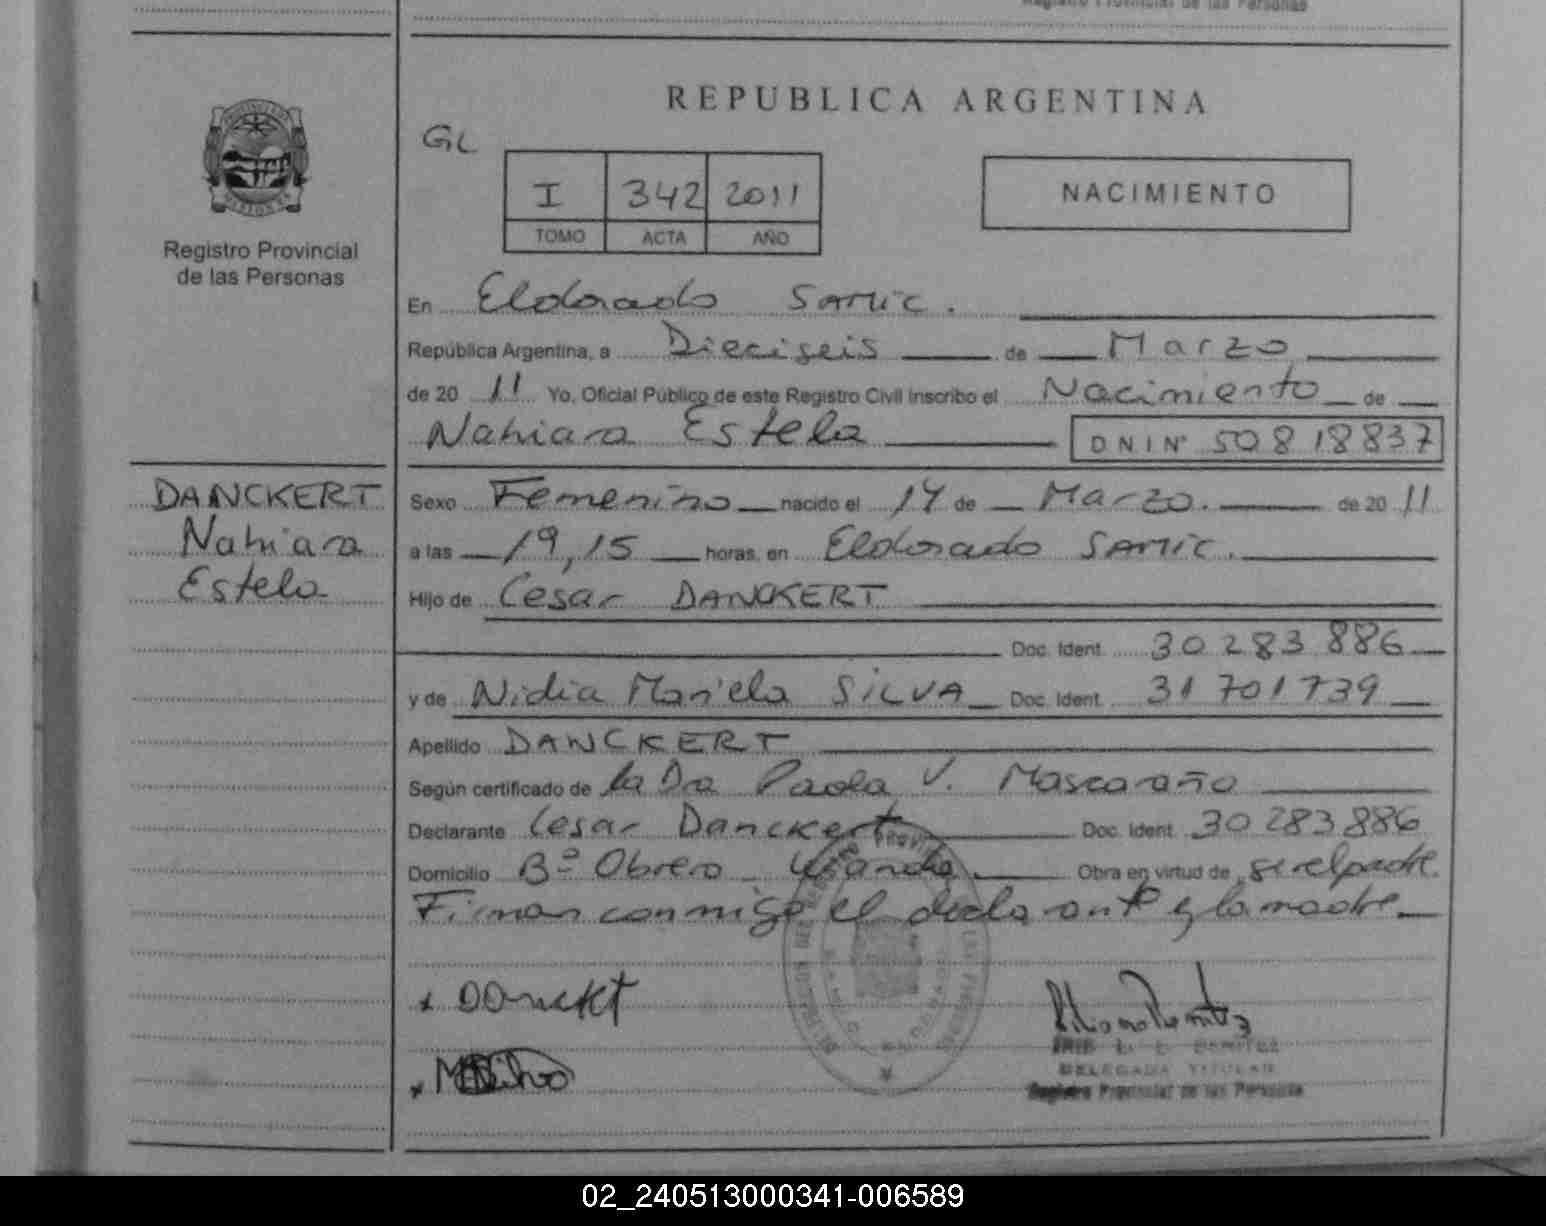 Registro Provincial de las Personas
REPUBLICA ARGENTINA
GL
I 342 2011
TOMO ACTA AÑO
NACIMIENTO
Registro Provincial
de las Personas
En Eldorado SAMIC.
República Argentina, a Dieciseis de Marzo
de 20 11 Yo, Oficial Público de este Registro Civil inscribo el Nacimiento de
Nahiara Estela D N I Nº 50818837
DANCKERT
Nahiara
Estela
Sexo Femenino nacido el 14 de Marzo. de 20 11
a las 19,15 horas, en Eldorado SAMIC.
Hijo de Cesar DANCKERT
Doc. Ident. 30 283 886
y de Nidia Mariela SILVA Doc. Ident. 31 701 739
Apellido DANCKERT
Según certificado de la Dra Paola V. Mascaraño
Declarante Cesar Danckert Doc. Ident. 30 283 886
Domicilio Bº Obrero Wanda. Obra en virtud de ser el padre.
Firman conmigo el declarante y la madre.
x Danckert
x MSilva
BENITEZ
DELEGADA TITULAR
Registro Provincial de las Personas
02_240513000341-006589